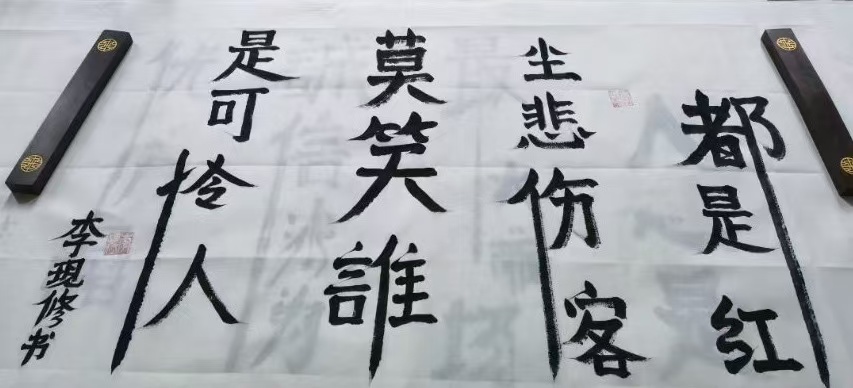 都是红
尘悲伤客
莫笑誰
是可怜人
李現修书